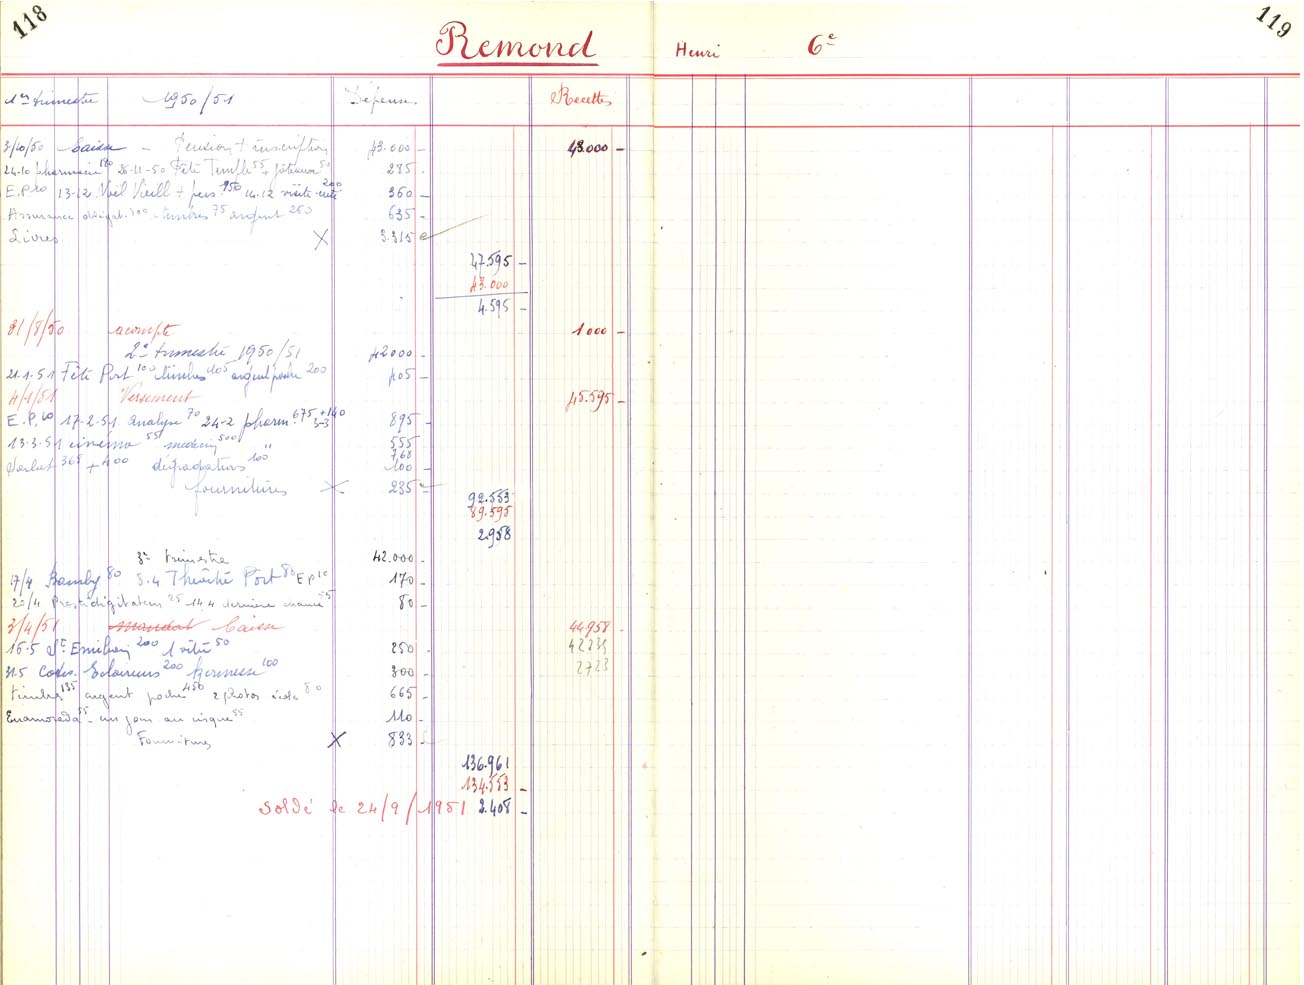 118
119
Remond Henri 6e
1er trimestre 1950/51 Dépense Recettes
3/10/50 Caisse - Pension + inscription 43.000 - 43.000 -
24-10 pharmacie 180 26-11-50 Fête Temple 55 + gâteaux 50 285 -
E.P. 10 13-12 Noël Vieill + pers. 150 14.12 visite 200 360 -
Assurance obligat. 300 timbres 75 argent 260 635 -
Livres X 3.315
47.595 -
43.000
4.595 -
31/8/50 acompte 1000 -
2e trimestre 1950/51 42000 -
21-1-51 Fête Port 100 timbres 105 argent poche 200 405 -
4/1/51 Versement 45.595 -
E.P. 10 17-2-51 analyse 70 24-2 pharm. 675 + 140 3-3 895 -
13-3-51 cinéma 55 médecin 500 555
365 + 400 dégradations 100 768
100 -
fournitures X 235 -
92.553
89.595
2.958
3e trimestre 42.000 -
17/4 Bamby 80 5-4 Théâtre Port 80 EP 10 170 -
20/4 Prestidigitateur 25 14.4 dernière 55 80 -
3/4/51 mandat Caisse 44.958 -
16-5 St Emilion 200 50 250 - 42235
31.5 Cotis. Eclaireurs 200 kermesse 100 300 - 2723
timbres 135 argent poche 450 2 photos école 80 665 -
Enamorada 55 - un jour au cirque 55 110 -
Fournitures X 833
136.961
134.553 -
Soldé le 24/9/1951 2.408 -